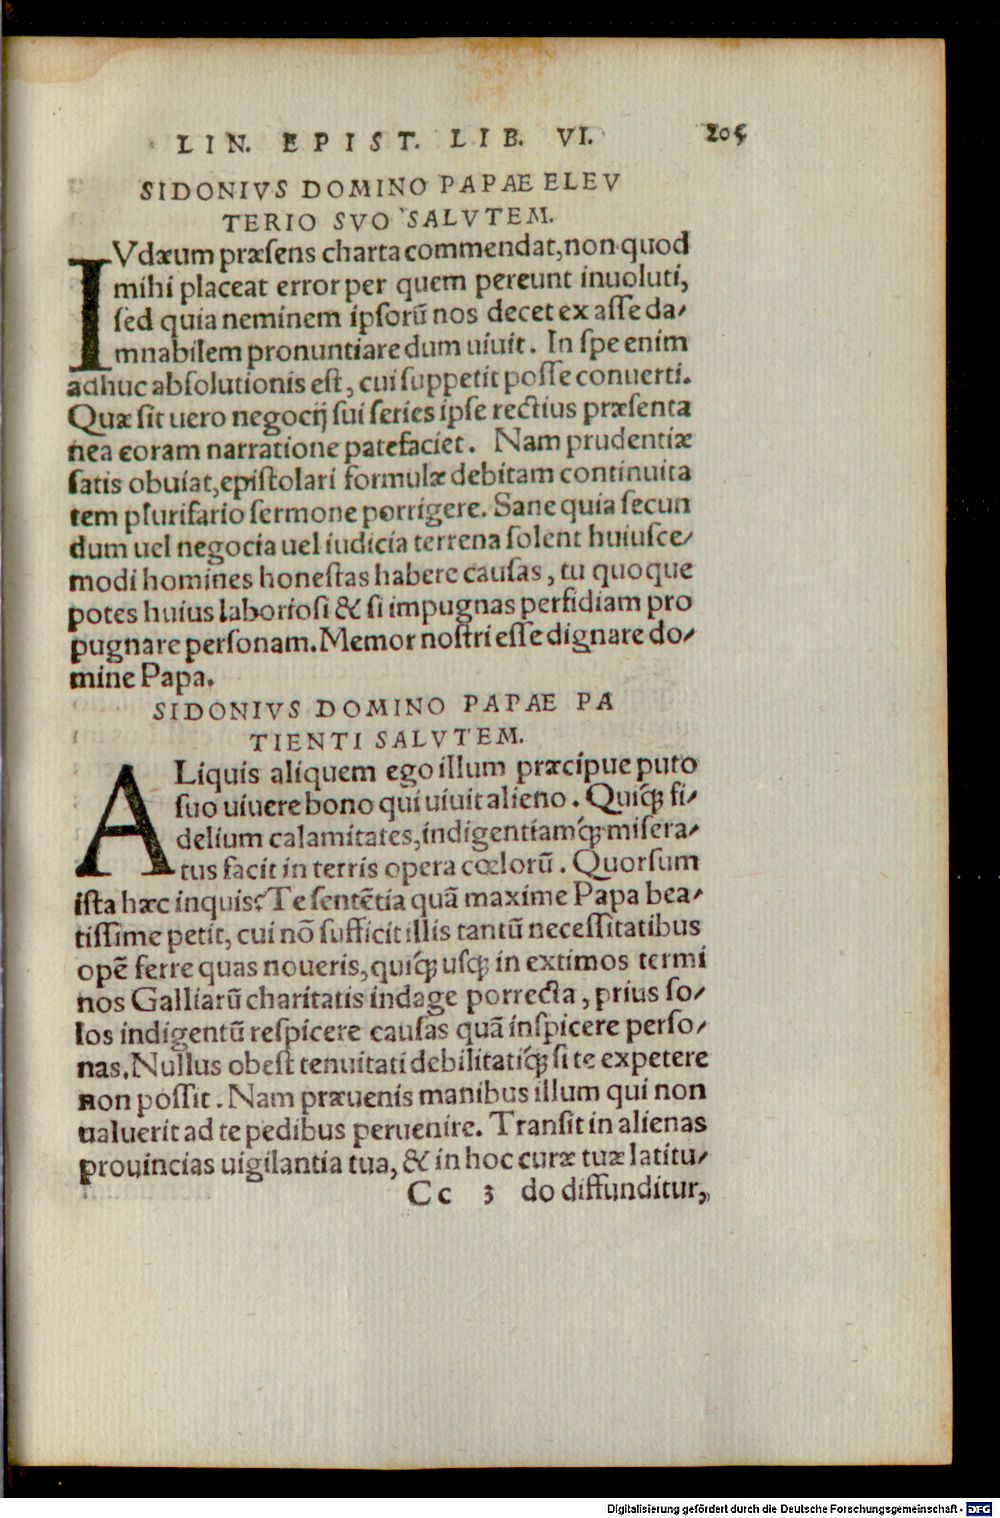 LIN. EPIST. LIB. VI. 205
SIDONIVS DOMINO PAPAE ELEV
TERIO SVO SALVTEM.
IVdæum præsens charta commendat, non quod
mihi placeat error per quem pereunt inuoluti,
sed quia neminem ipsorũ nos decet ex asse da/
mnabilem pronuntiare dum uiuit. In spe enim
adhuc absolutionis est, cui suppetit posse conuerti.
Quæ sit uero negocij sui series ipse rectius præsenta
nea coram narratione patefaciet. Nam prudentiæ
satis obuiat, epistolari formulæ debitam continuita
tem plurifario sermone porrigere. Sane quia secun
dum uel negocia uel iudicia terrena solent huiusce/
modi homines honestas habere causas, tu quoque
potes huius laboriosi & si impugnas perfidiam pro
pugnare personam. Memor nostri esse dignare do/
mine Papa.
SIDONIVS DOMINO PAPAE PA
TIENTI SALVTEM.
ALiquis aliquem ego illum præcipue puto
suo uiuere bono qui uiuit alieno. Quiq́ꝫ fi/
delium calamitates, indigentiamq́ꝫ misera/
tus facit in terris opera cœlorũ. Quorsum
ista hæc inquis? Te sentẽtia quã maxime Papa bea/
tissime petit, cui nõ sufficit illis tantũ necessitatibus
opẽ ferre quas noueris, quiq́ꝫ usqꝫ in extimos termi
nos Galliarũ charitatis indage porrecta, prius so/
los indigentũ respicere causas quã inspicere perso/
nas. Nullus obest tenuitati debilitatiq́ꝫ si te expetere
non possit. Nam præuenis manibus illum qui non
ualuerit ad te pedibus peruenire. Transit in alienas
prouincias uigilantia tua, & in hoc curæ tuæ latitu/
Cc 3 do diffunditur,
Digitalisierung gefördert durch die Deutsche Forschungsgemeinschaft - DFG